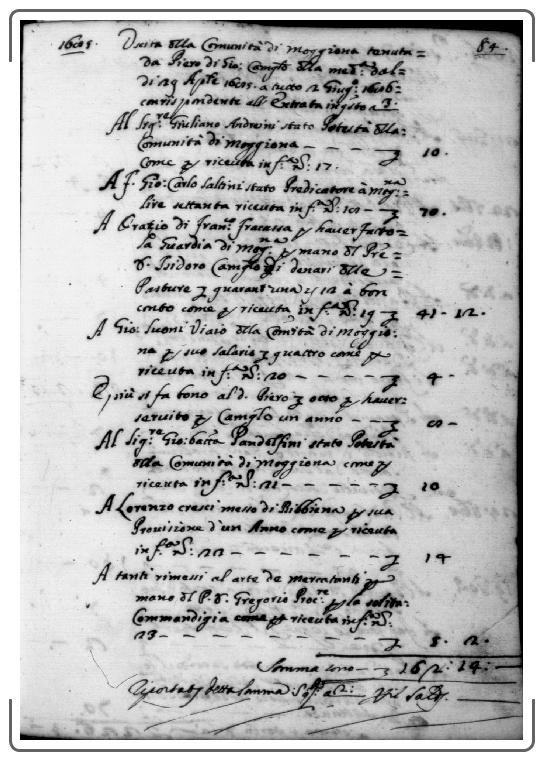 1605. Uscita della Comunità di Moggiona tenuta= 84.
da Piero di Gio: Camglo della med.ma dal=
di 29 Aple 1605. a tutto 2 Giug.o 1606=
corrispondente all' Entrata in q.sto a 3.
Al Sig.re Giuliano Andreini stato Potestà della=
Comunità di Moggiona - - - - - - 10.
Come p riceuta in f.a N.o: 17.
A f. Gio: Carlo Saltini stato Predicatore à Mog.na=
lire settanta riceuta in f.a N.o: 18 - - 70.
A Orazio di Fran.co Fracassa p haver fatto=
la Guardia di Mog.na p mano del Pre=
D. Isidoro Camglo di denari delle=
Pasture quarant'una 12 à bon
conto come p riceuta in f.a N.o: 19 41 - 12.
A Gio: Viaio della Com.ità di Moggio=
na p suo salario quattro come p
riceuta in f.a N.o: 20 - - - - - - 4 -
E più si fa bono al d. Piero otto p haver=
servito p Camglo un anno - - - 8 -
Al Sig.re Gio: batta Pandolfini stato Potestà
della Comunità di Moggiona come p
riceuta in f.a N.o: 21 - - - - - - 10
A Lorenzo cresci messo di Bibbiena p sua
Provisione d'un Anno come p riceuta
in f.a N.o: 22 - - - - - - - - 14
A tanti rimessi al arte de mercatanti p
mano del P. D. Gregorio Proc.re p la solita=
Commandigia come p riceuta in f.a N.o:
23 - - - - - - - - - - 5 . 2 .
Somma sono - - 162: 14:
detta somma a 2: